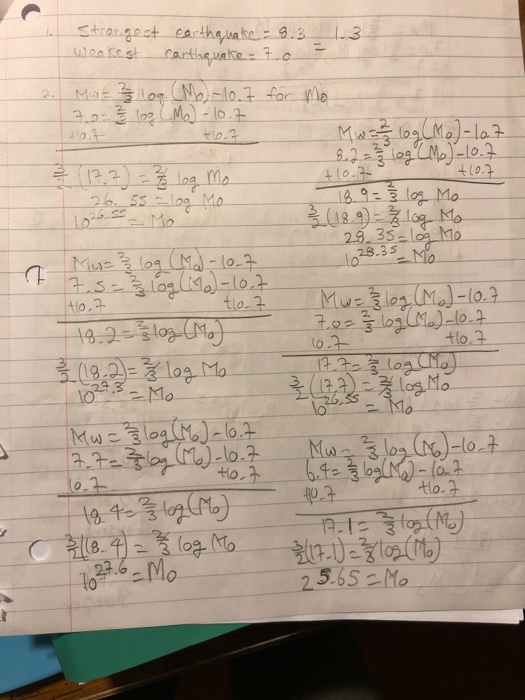 1. Strongest earthquake = 8.3 = 1.3
Weakest earthquake = 7.0
2. Mw = 2/3 log (Mo) - 10.7 for Mo
7.0 = 2/3 log (Mo) - 10.7
+10.7 +10.7
3/2 (17.7) = 2/3 log Mo
26.55 = log Mo
10^26.55 = Mo
Mw = 2/3 log (Mo) - 10.7
8.2 = 2/3 log (Mo) - 10.7
+10.7 +10.7
18.9 = 2/3 log Mo
3/2 (18.9) = 2/3 log Mo
28.35 = log Mo
10^28.35 = Mo
Mw = 2/3 log (Mo) - 10.7
7.5 = 2/3 log (Mo) - 10.7
+10.7 +10.7
18.2 = 2/3 log (Mo)
3/2 (18.2) = 2/3 log Mo
10^27.3 = Mo
Mw = 2/3 log (Mo) - 10.7
7.0 = 2/3 log (Mo) - 10.7
10.7 +10.7
17.7 = 2/3 log (Mo)
3/2 (17.7) = 2/3 log Mo
10^26.55 = Mo
Mw = 2/3 log (Mo) - 10.7
7.7 = 2/3 log (Mo) - 10.7
10.7 +10.7
18.4 = 2/3 log (Mo)
3/2 (18.4) = 2/3 log Mo
10^27.6 = Mo
Mw = 2/3 log (Mo) - 10.7
6.4 = 2/3 log (Mo) - 10.7
+10.7 +10.7
17.1 = 2/3 log (Mo)
3/2 (17.1) = 2/3 log (Mo)
25.65 = Mo